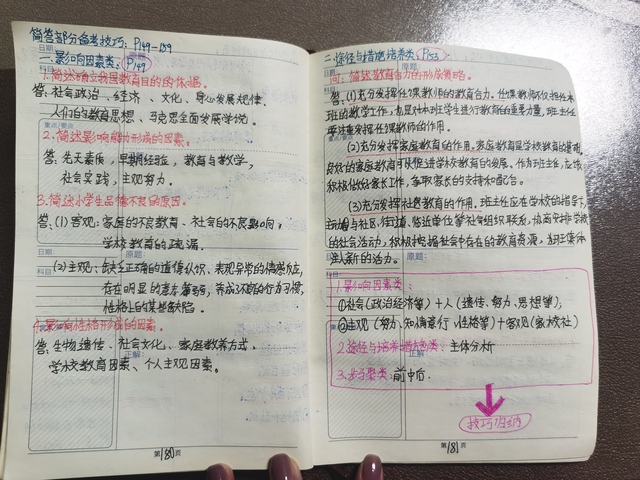 简答部分备考技巧：P149-159
日期：
一.影响因素类：P149
科目
1.简述确立我国教育目的的依据。
答：社会政治、经济、文化、身心发展规律、
人们的教育思想、马克思全面发展学说。
重点/要点
2.简述影响能力形成的因素。
答：先天素质，早期经验，教育与教学，
社会实践，主观努力。
3.简述小学生品德不良的原因。
答：(1)客观：家庭的不良教育、社会的不良影响，
学校教育的疏漏。
日期：
原题：
科目
(2)主观：缺乏正确的道德认识、表现异常的情感反应，
存在明显的意志薄弱，养成不良的行为习惯，
性格上的某些缺陷。
4.影响性格形成的因素。
答：生物遗传、社会文化、家庭教养方式、
正解：
学校教育因素、个人主观因素。
第180页
二.途径与措施培养类：P153
日期
原题：
问：简述教育合力的形成策略。
答：(1)充分发挥任课教师的教育合力。任课教师不仅担任本
班的教学工作，也是对本班学生进行教育的重要力量，班主任
要注重发挥任课教师的作用。
(2)充分发挥家庭教育的作用。家庭教育是学校教育的基础，
良好的家庭教育可促进学校教育的发展。作为班主任，应该
积极做好家长工作，争取家长的支持和配合。
(3)充分发挥社区教育的作用，班主任应在学校的指导下，
主动与社区、街道、临近单位等社会组织联系，协商安排学校
的社会活动，积极挖掘社会中存在的教育资源，为班集体
注入新的活力。
日期：
原题：
科目
1.影响因素类：
①社会(政治经济等)+人(遗传、努力、思想等)；
②主观(努力、知情意行、性格等)+客观(家校社)
2.途径与培养措施类：主体分析
正解：
3.步骤类：前中后.
技巧归纳
第181页